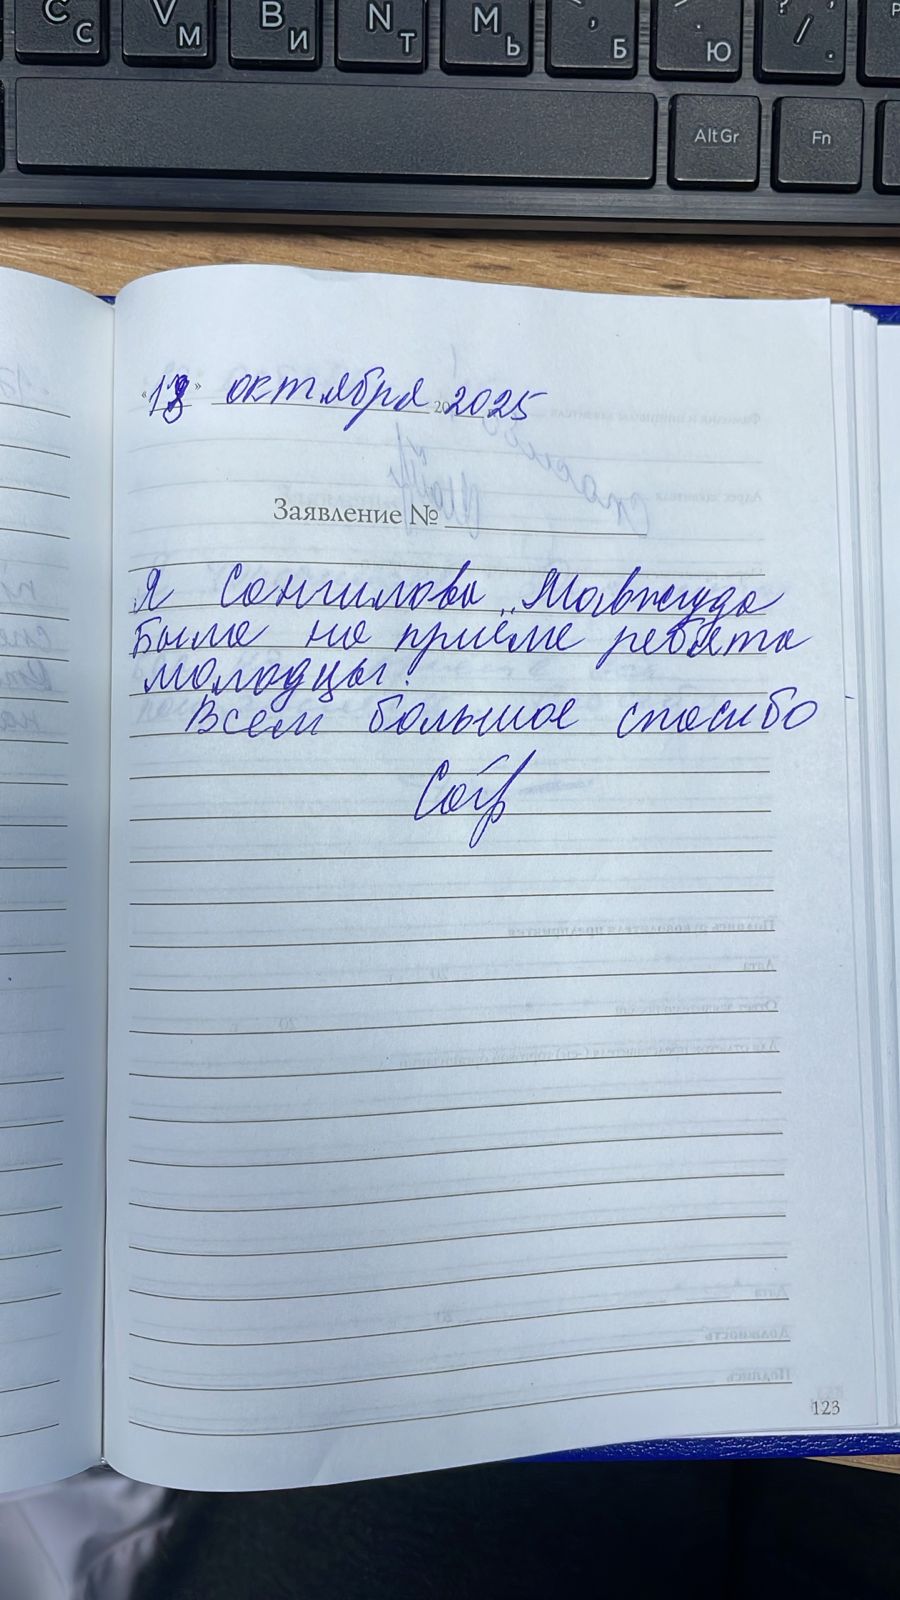 C С
V М
B И
N Т
M Ь
, Б
. Ю
? , / .
Alt Gr
Fn
« » октября 20 2025
Заявление №
Я Сангилова Мавжуда
была на приёме ребята
молодцы!
Всем большое спасибо
123